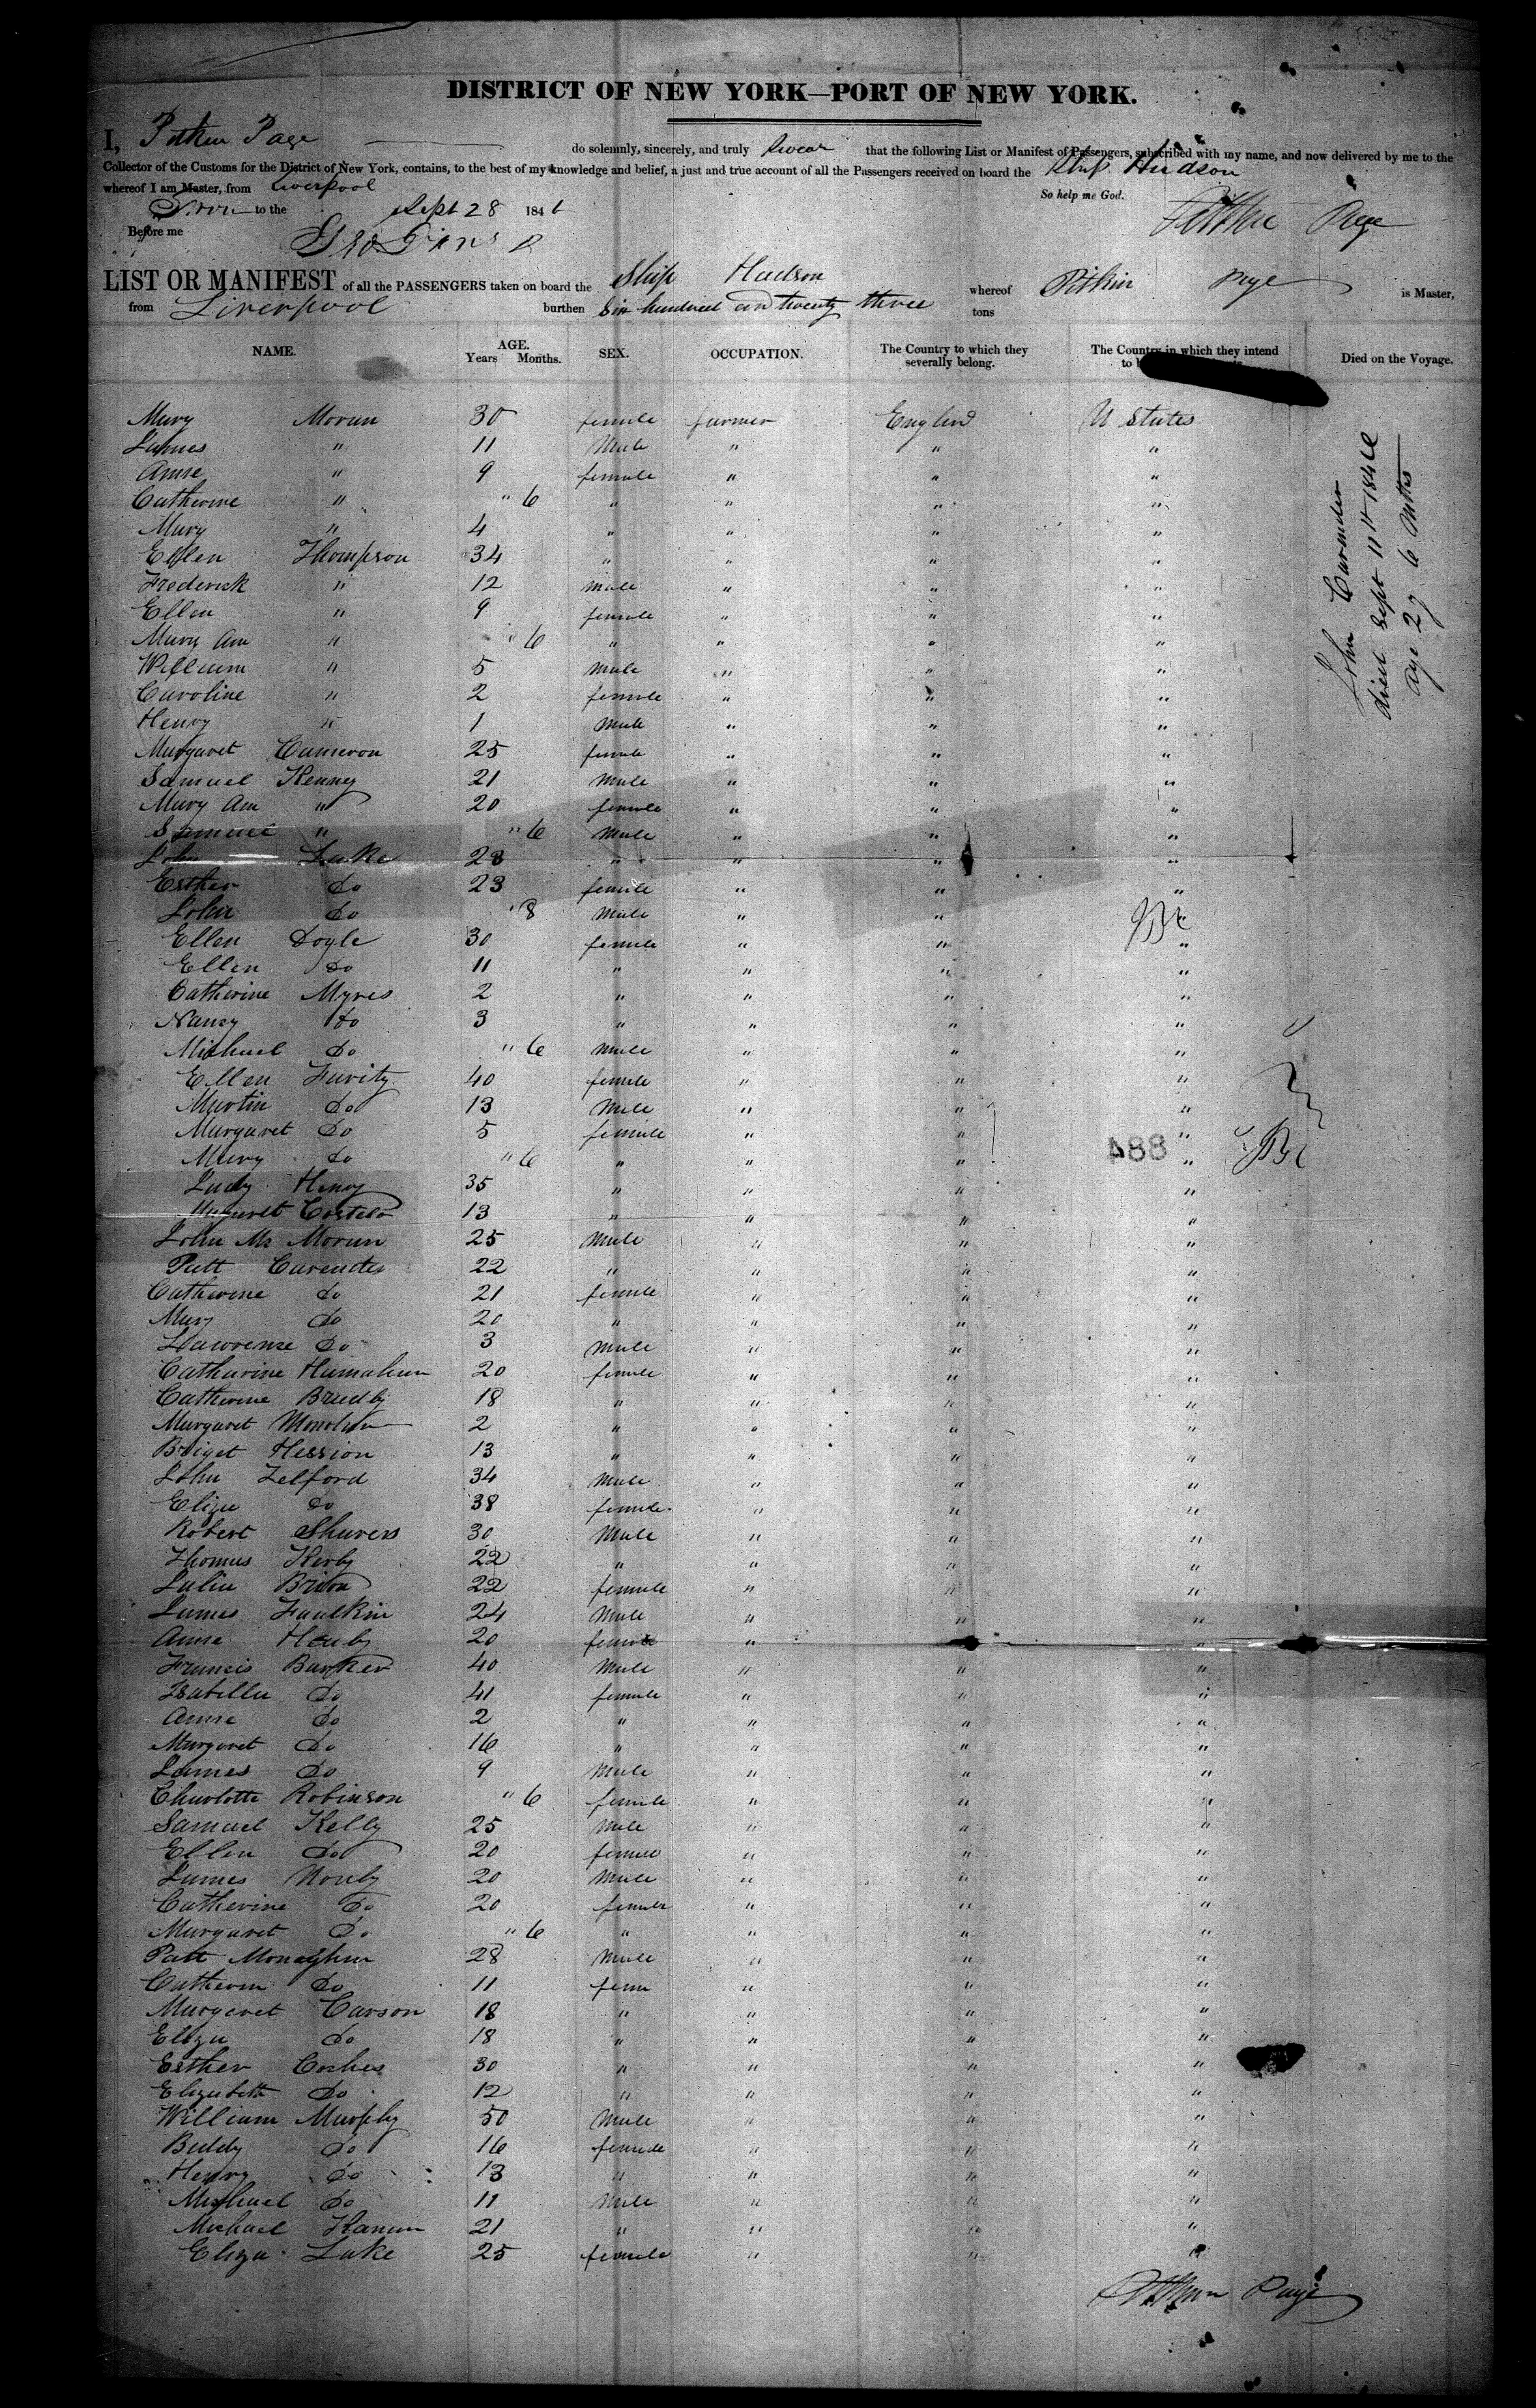 DISTRICT OF NEW YORK—PORT OF NEW YORK.
I, Pitkin Page do solemnly, sincerely, and truly swear that the following List or Manifest of Passengers, subscribed with my name, and now delivered by me to the
Collector of the Customs for the District of New York, contains, to the best of my knowledge and belief, a just and true account of all the Passengers received on board the Ship Hudson
whereof I am Master, from Liverpool
So help me God.
Sworn to the Sept 28 1846
Pitkin Page
Before me
LIST OR MANIFEST of all the PASSENGERS taken on board the Ship Hudson whereof Pitkin Page is Master,
from Liverpool burthen Six hundred and twenty three tons
NAME. AGE. Years Months. SEX. OCCUPATION. The Country to which they severally belong. The Country in which they intend to Died on the Voyage.
Mary Moran 30 female farmer England U States
James " 11 Male " " "
Anne " 9 female " " "
Catherine " " 6 " " " "
Mary " 4 " " " "
Ellen Thompson 34 " " " "
Frederick " 12 male " " "
Ellen " 9 female " " "
Mary Ann " " 6 " " " "
William " 5 Male " " "
Caroline " 2 female " " "
Henry " 1 Male " " "
Margaret Cameron 25 female " " "
Samuel Kenney 21 Male " " "
Mary Ann " 20 female " " "
Samuel " " 6 Male " " "
John Luke 28 " " " "
Esther Do 23 female " " "
John Do " 8 Male " " "
Ellen Doyle 30 female " " "
Ellen Do 11 " " " "
Catherine Myres 2 " " " "
Nancy Do 3 " " " "
Michael Do " 6 Male " " "
Ellen Farity 40 female " " "
Martin Do 13 Male " " "
Margaret Do 5 female " " "
Mary Do " 6 " " " "
488
Judy Henry 35 " " " "
Margaret Costelo 13 " " " "
John Mc Moran 25 Male " " "
Patt Carender 22 " " " "
Catherine Do 21 female " " "
Mary Do 20 " " " "
Lawrense Do 3 Male " " "
Catharine Hamahan 20 female " " "
Catherine Bradly 18 " " " "
Margaret Monohan 2 " " " "
Briget Hession 13 " " " "
John Telford 34 Male " " "
Eliza Do 38 female " " "
Robert Shavers 30 Male " " "
Thomas Kerby 22 " " " "
Julia Brion 22 female " " "
James Faulkin 24 Male " " "
Anne Heuby 20 female " " "
Francis Barker 40 Male " " "
Isabella Do 41 female " " "
Anne Do 2 " " " "
Margaret Do 16 " " " "
James Do 9 Male " " "
Charlotte Robinson " 6 female " " "
Samuel Kelly 25 Male " " "
Ellen Do 20 female " " "
James Nouby 20 Male " " "
Catherine Do 20 female " " "
Margaret Do " 6 " " " "
Patt Monaghan 28 Male " " "
Catherin Do 11 fem " " "
Margaret Carson 18 " " " "
Eliza Do 18 " " " "
Esther Coches 30 " " " "
Elizabeth Do 12 " " " "
William Murphy 50 Male " " "
Biddy Do 16 female " " "
Henry Do 13 " " " "
Michael Do 11 Male " " "
Michael Hanun 21 " " " "
Eliza Luke 25 female " " "
John Carender
died Sept 11th 1846
age 27 6 mths
Pitkin Page